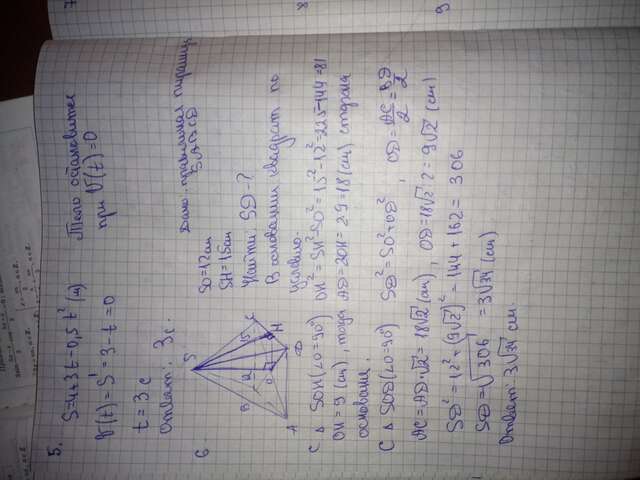 5. S=4+3t-0,5t² (м) Тело остановится
V(t)=S'=3-t=0 при V(t)=0
t=3c
Ответ: 3с.
6 Дано: правильная пирамида
SABCD
SO=12см
SH=15см
Найти: SD-?
В основании квадрат по
условию.
S
B
C
A
D
O
H
12
15
С △ SOH(∠O=90°) OH²=SH²-SO²=15²-12²=225-144=81
OH=9(см), тогда AD=2OH=2·9=18(см) сторона
основания.
С △ SOD(∠O=90°) SD²=SO²+OD², OD=AC/2=BD/2
AC=AD·√2=18√2(см), OD=18√2:2=9√2(см)
SD²=12²+(9√2)²=144+162=306
SD=√306=3√34(см)
Ответ: 3√34 см.
7
8
9